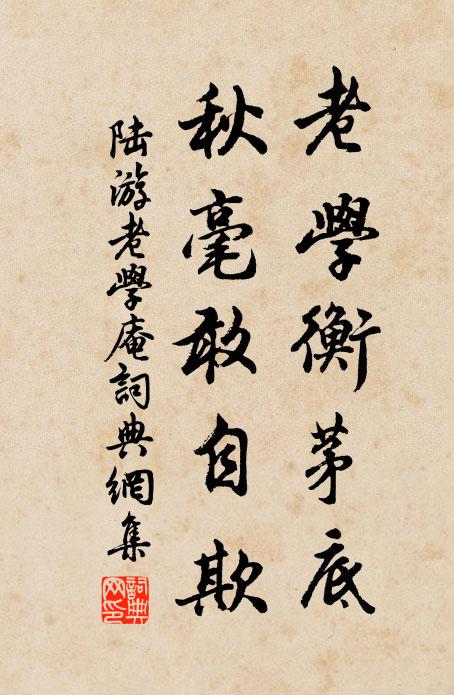 老學衡茅底
秋毫敢自欺
陸游老學庵詞典網集
詞典網印